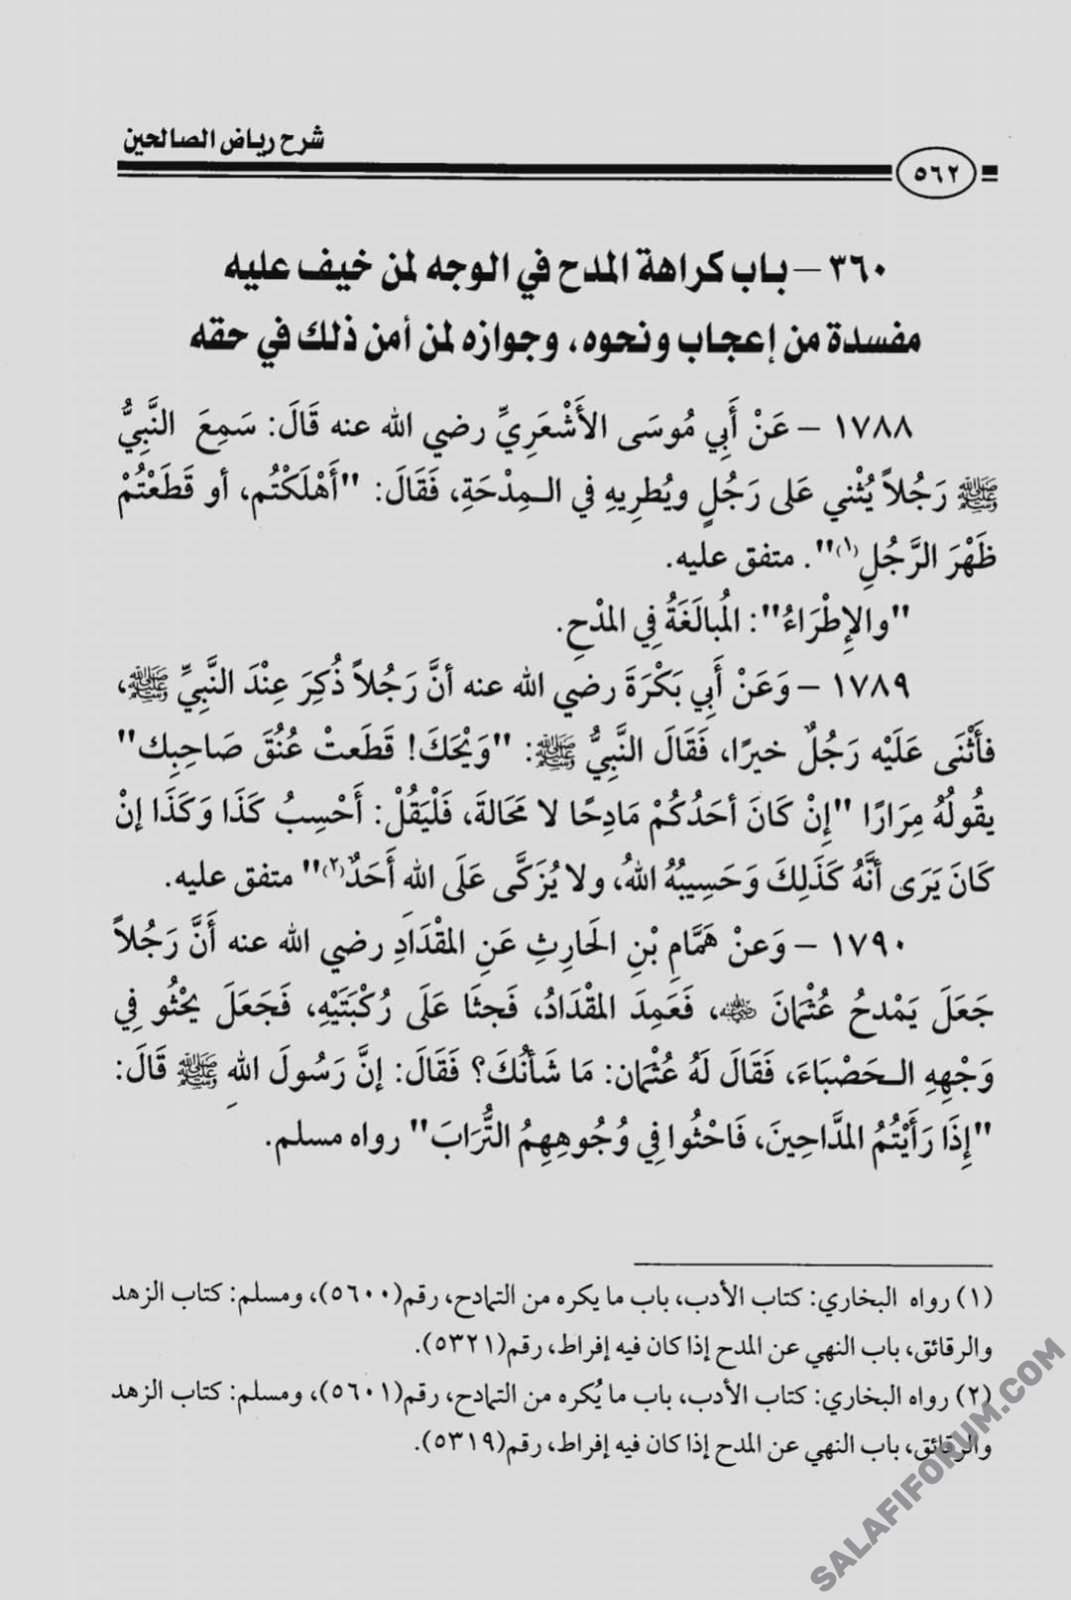 شرح رياض الصالحين
٥٦٢
٣٦٠ – باب كراهة المدح في الوجه لمن خيف عليه
مفسدة من إعجاب ونحوه، وجوازه لمن أمن ذلك في حقه
١٧٨٨ – عَنْ أَبِي مُوسَى الأَشْعَرِيِّ رضي الله عنه قَالَ: سَمِعَ النَّبِيُّ
ﷺ رَجُلاً يُثْنِي عَلى رَجُلٍ ويُطرِيهِ فِي الـمِدْحَةِ، فَقَالَ: "أَهْلَكْتُم، أو قَطَعْتُمْ
ظَهْرَ الرَّجُلِ(١)". متفق عليه.
"والإِطْرَاءُ": المُبالَغَةُ فِي المدْحِ.
١٧٨٩ – وَعَنْ أَبِي بَكْرَةَ رضي الله عنه أنَّ رَجُلاً ذُكِرَ عِنْدَ النَّبِيِّ ﷺ،
فأَثْنَى عَلَيْه رَجُلٌ خيرًا، فَقَالَ النَّبِيُّ ﷺ: "وَيْحَكَ! قَطَعتْ عُنُقَ صَاحِبِك"
يقُولُهُ مِرَارًا "إِنْ كَانَ أحَدُكُمْ مَادِحًا لا مَحَالةَ، فَلْيَقُلْ: أَحْسِبُ كَذَا وَكَذَا إنْ
كَانَ يَرَى أنَّهُ كَذَلِكَ وَحَسِيبُهُ اللهُ، ولا يُزَكَّى عَلَى الله أَحَدٌ(٢)" متفق عليه.
١٧٩٠ – وَعنْ هَمَّامِ بْنِ الحَارِثِ عَنِ المقْدَادِ رضي الله عنه أَنَّ رَجُلاً
جَعَلَ يَمْدحُ عُثْمَانَ رضي الله عنه، فَعَمِدَ المقْدَادُ، فَجثَا عَلَى رُكْبَتَيْهِ، فَجَعَلَ يَحْثُو فِي
وَجْهِهِ الـحَصْبَاءَ، فَقَالَ لَهُ عُثْمَان: مَا شَأنُكَ؟ فَقَالَ: إنَّ رَسُولَ اللهِ ﷺ قَالَ:
"إِذَا رَأَيْتُمُ المدَّاحِينَ، فَاحْثُوا فِي وُجُوهِهِمُ التُّرَابَ" رواه مسلم.
(١) رواه البخاري: كتاب الأدب، باب ما يكره من التمادح، رقم(٥٦٠٠)، ومسلم: كتاب الزهد
والرقائق، باب النهي عن المدح إذا كان فيه إفراط، رقم(٥٣٢١).
(٢) رواه البخاري: كتاب الأدب، باب ما يُكره من التمادح، رقم(٥٦٠١)، ومسلم: كتاب الزهد
والرقائق، باب النهي عن المدح إذا كان فيه إفراط، رقم(٥٣١٩).
SALAFIFORUM.COM